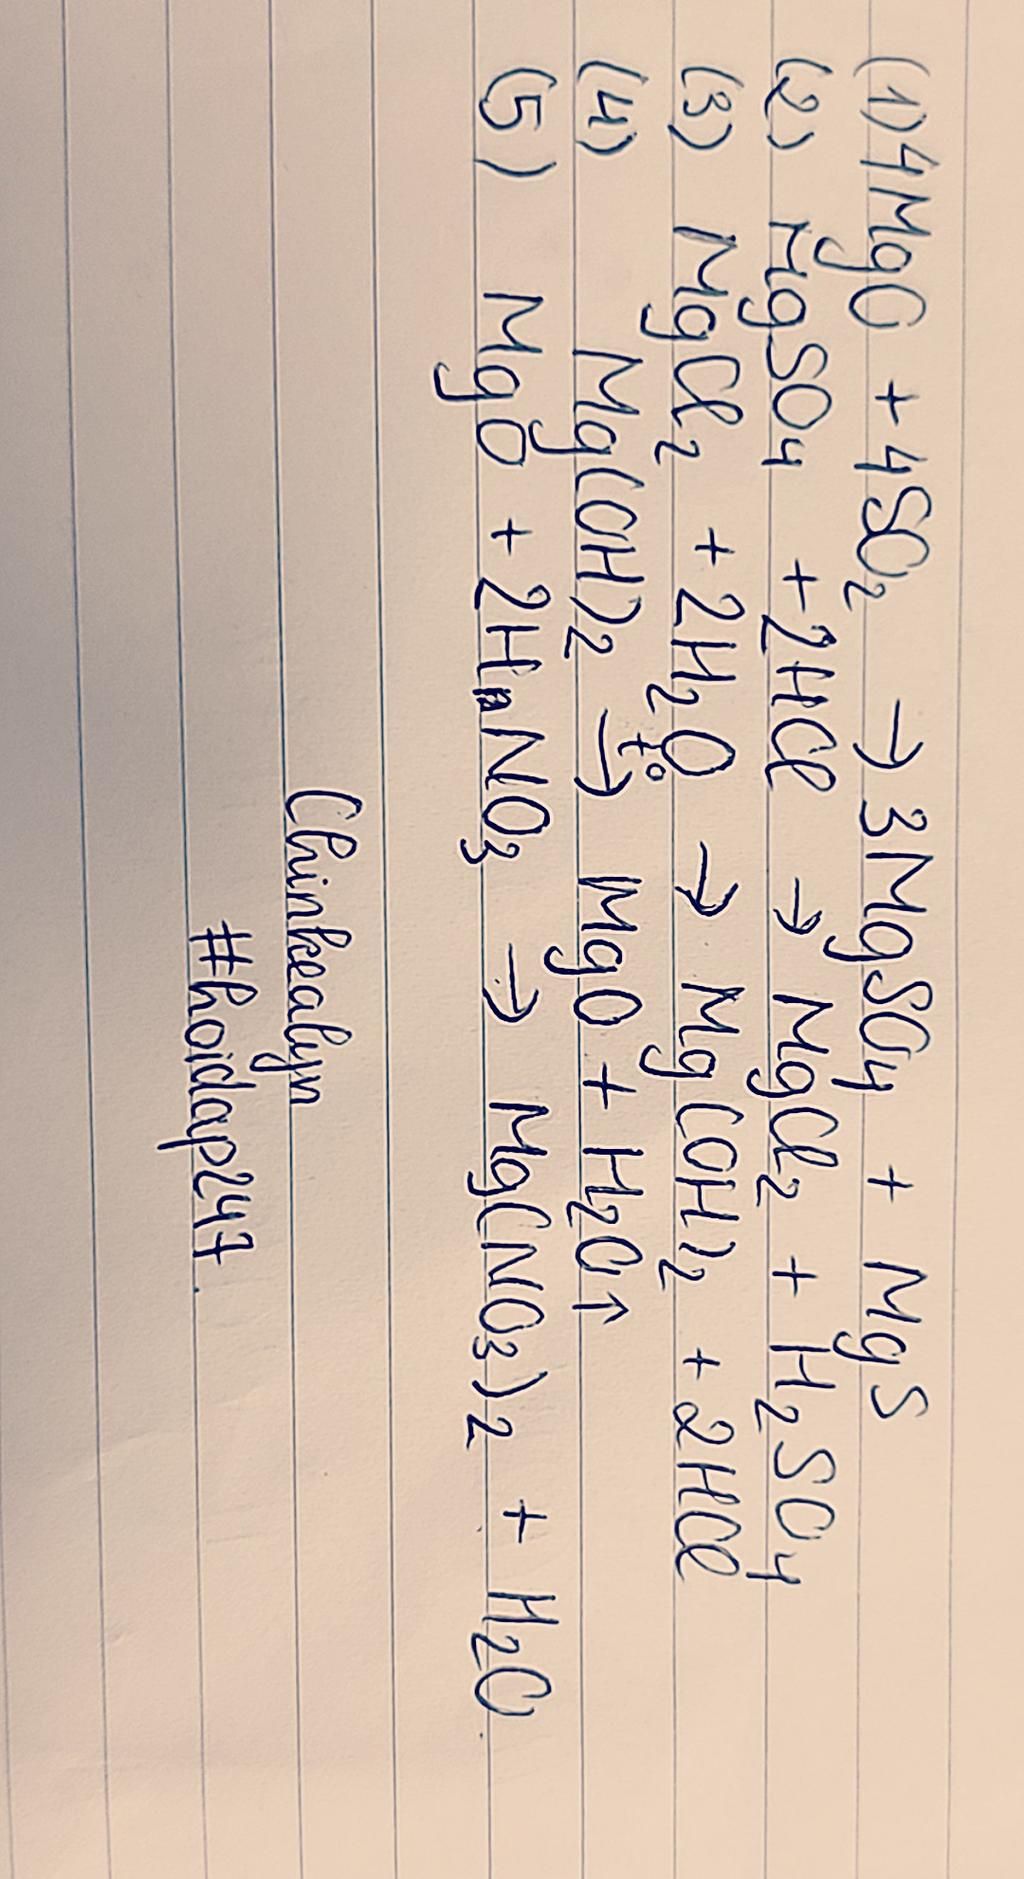 (1) 4MgO + 4SO₂ → 3MgSO₄ + MgS
(2) MgSO₄ + 2HCl → MgCl₂ + H₂SO₄
(3) MgCl₂ + 2H₂O → Mg(OH)₂ + 2HCl
(4) Mg(OH)₂ →t° MgO + H₂O↑
(5) MgO + 2HNO₃ → Mg(NO₃)₂ + H₂O.
Chinkealyn
#hoidap247.